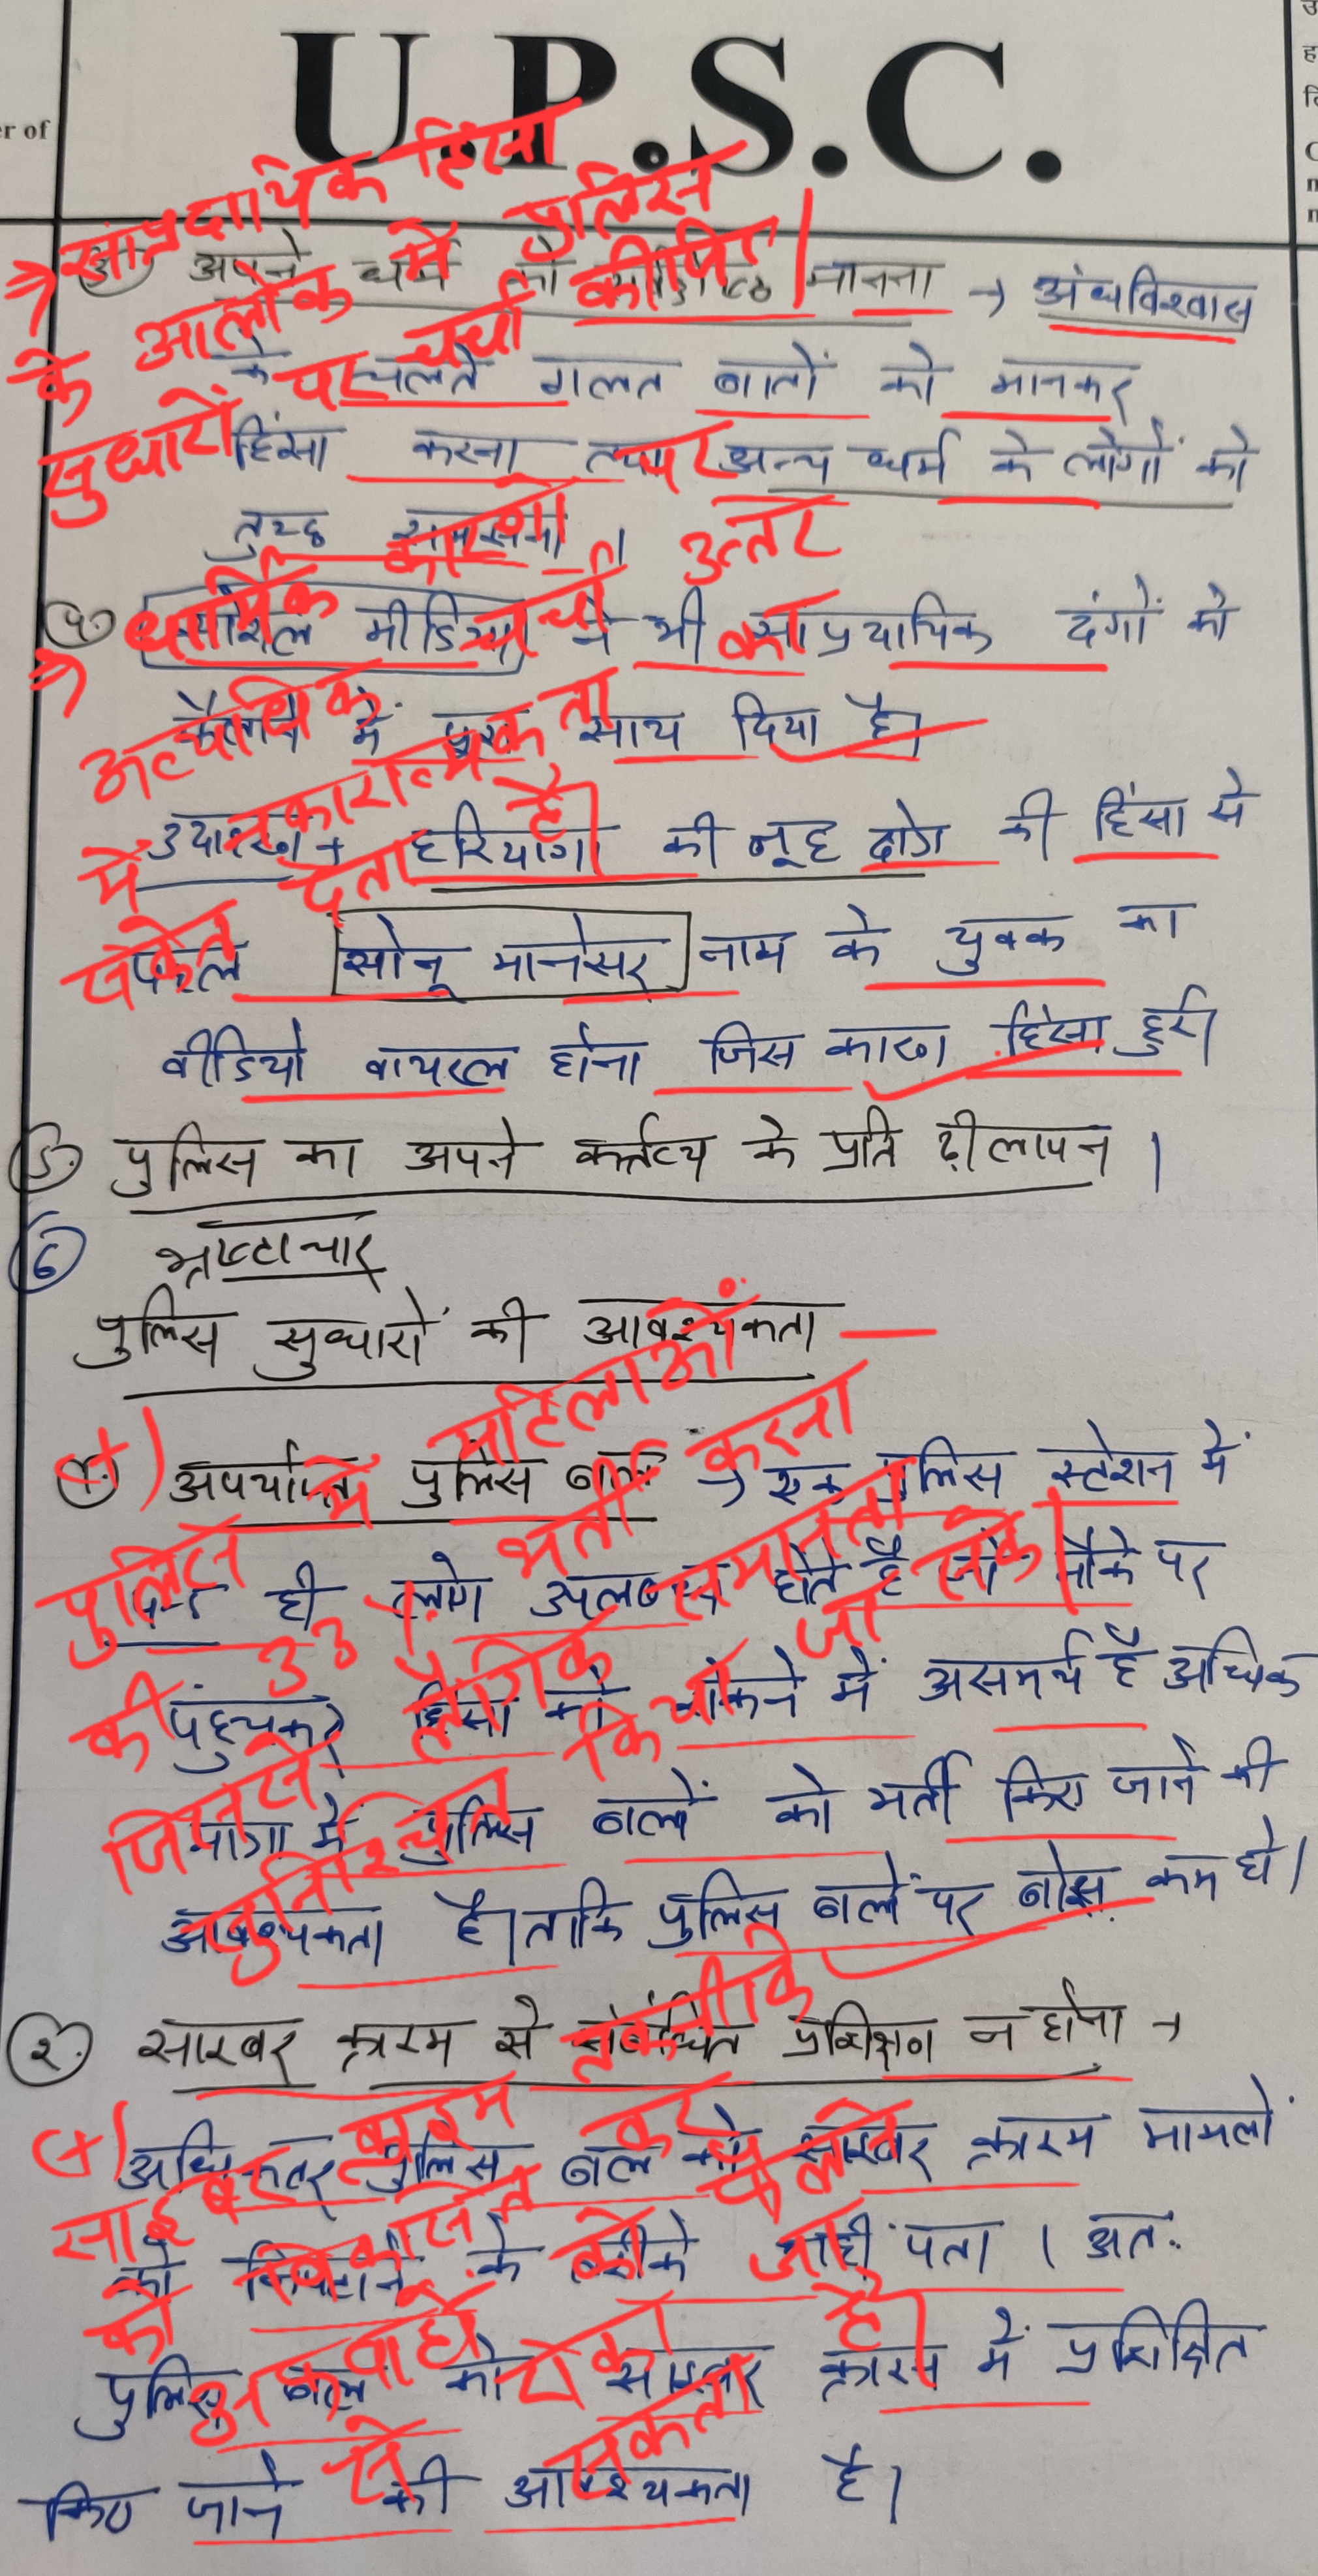 U.P.S.C.
er of
⇒ सांप्रदायिक हिंसा
के आलोक में पुलिस
सुधारों पर चर्चा कीजिए।
③ अपने धर्म को मानना → अंधविश्वास
के चलते गलत बातों को मानकर
हिंसा करना तथा अन्य धर्म के लोगों को
तुच्छ समझना।
⇒ धार्मिक कारणों पर
चर्चा उत्तर का
अत्यधिक नकारात्मकता
में संकेत देता है।
④ सोशल मीडिया ने भी साप्रदायिक दंगों को
फैलाने में पूरा साथ दिया है।
उदाहरण → हरियाणा की नूह की हिंसा से
पहले सोनू मानेसर नाम के युवक का
वीडियो वायरल होना जिस कारण हिंसा हुई।
⑤ पुलिस का अपने कर्त्तव्य के प्रति ढीलापन।
⑥ भ्रष्टाचार
पुलिस सुधारों की आवश्यकता —
① अपर्याप्त पुलिस बल → एक पुलिस स्टेशन में
ही लोग उपलब्ध होते है जो मौके पर
पंहुचकर हिंसा को रोकने में असमर्थ है अधिक
मात्रा में पुलिस बलों को भर्ती किए जाने की
आवश्यकता है। ताकि पुलिस बलों पर बोझ कम हो।
(+) पुलिस में महिलाओं
की 33 % भर्ती करना
जिससे लैंगिक समानता
सुनिश्चित किया जा सके।
२. साइबर क्राइम से संबंधित प्रशिक्षण न होना →
अधिकतर पुलिस बल को साइबर क्राइम मामलों
को निपटाने के तरीके नही पता। अतः
पुलिस बल को साइबर क्राइम में प्रशिक्षित
किए जाने की आवश्यकता है।
(+) साइबर क्राइम तकनीकि
को विकसित कर फैलने
अफवाहों को रोका जा
सकता है।